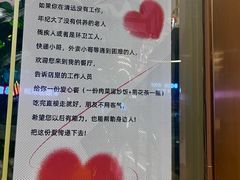 如果你在清远没有工作,
年纪大了没有供养的老人
残疾人或者是环卫工人,
快递小哥,外卖小哥等遇到困难的人,
欢迎您来到我的餐厅,
告诉店里的工作人员
给你一份爱心餐(一份肉菜蛋炒饭+菊花茶一瓶)
吃完直接走就好,朋友不用客气,
希望您以后有能力,也能帮助身边人,
把这份爱传递下去!